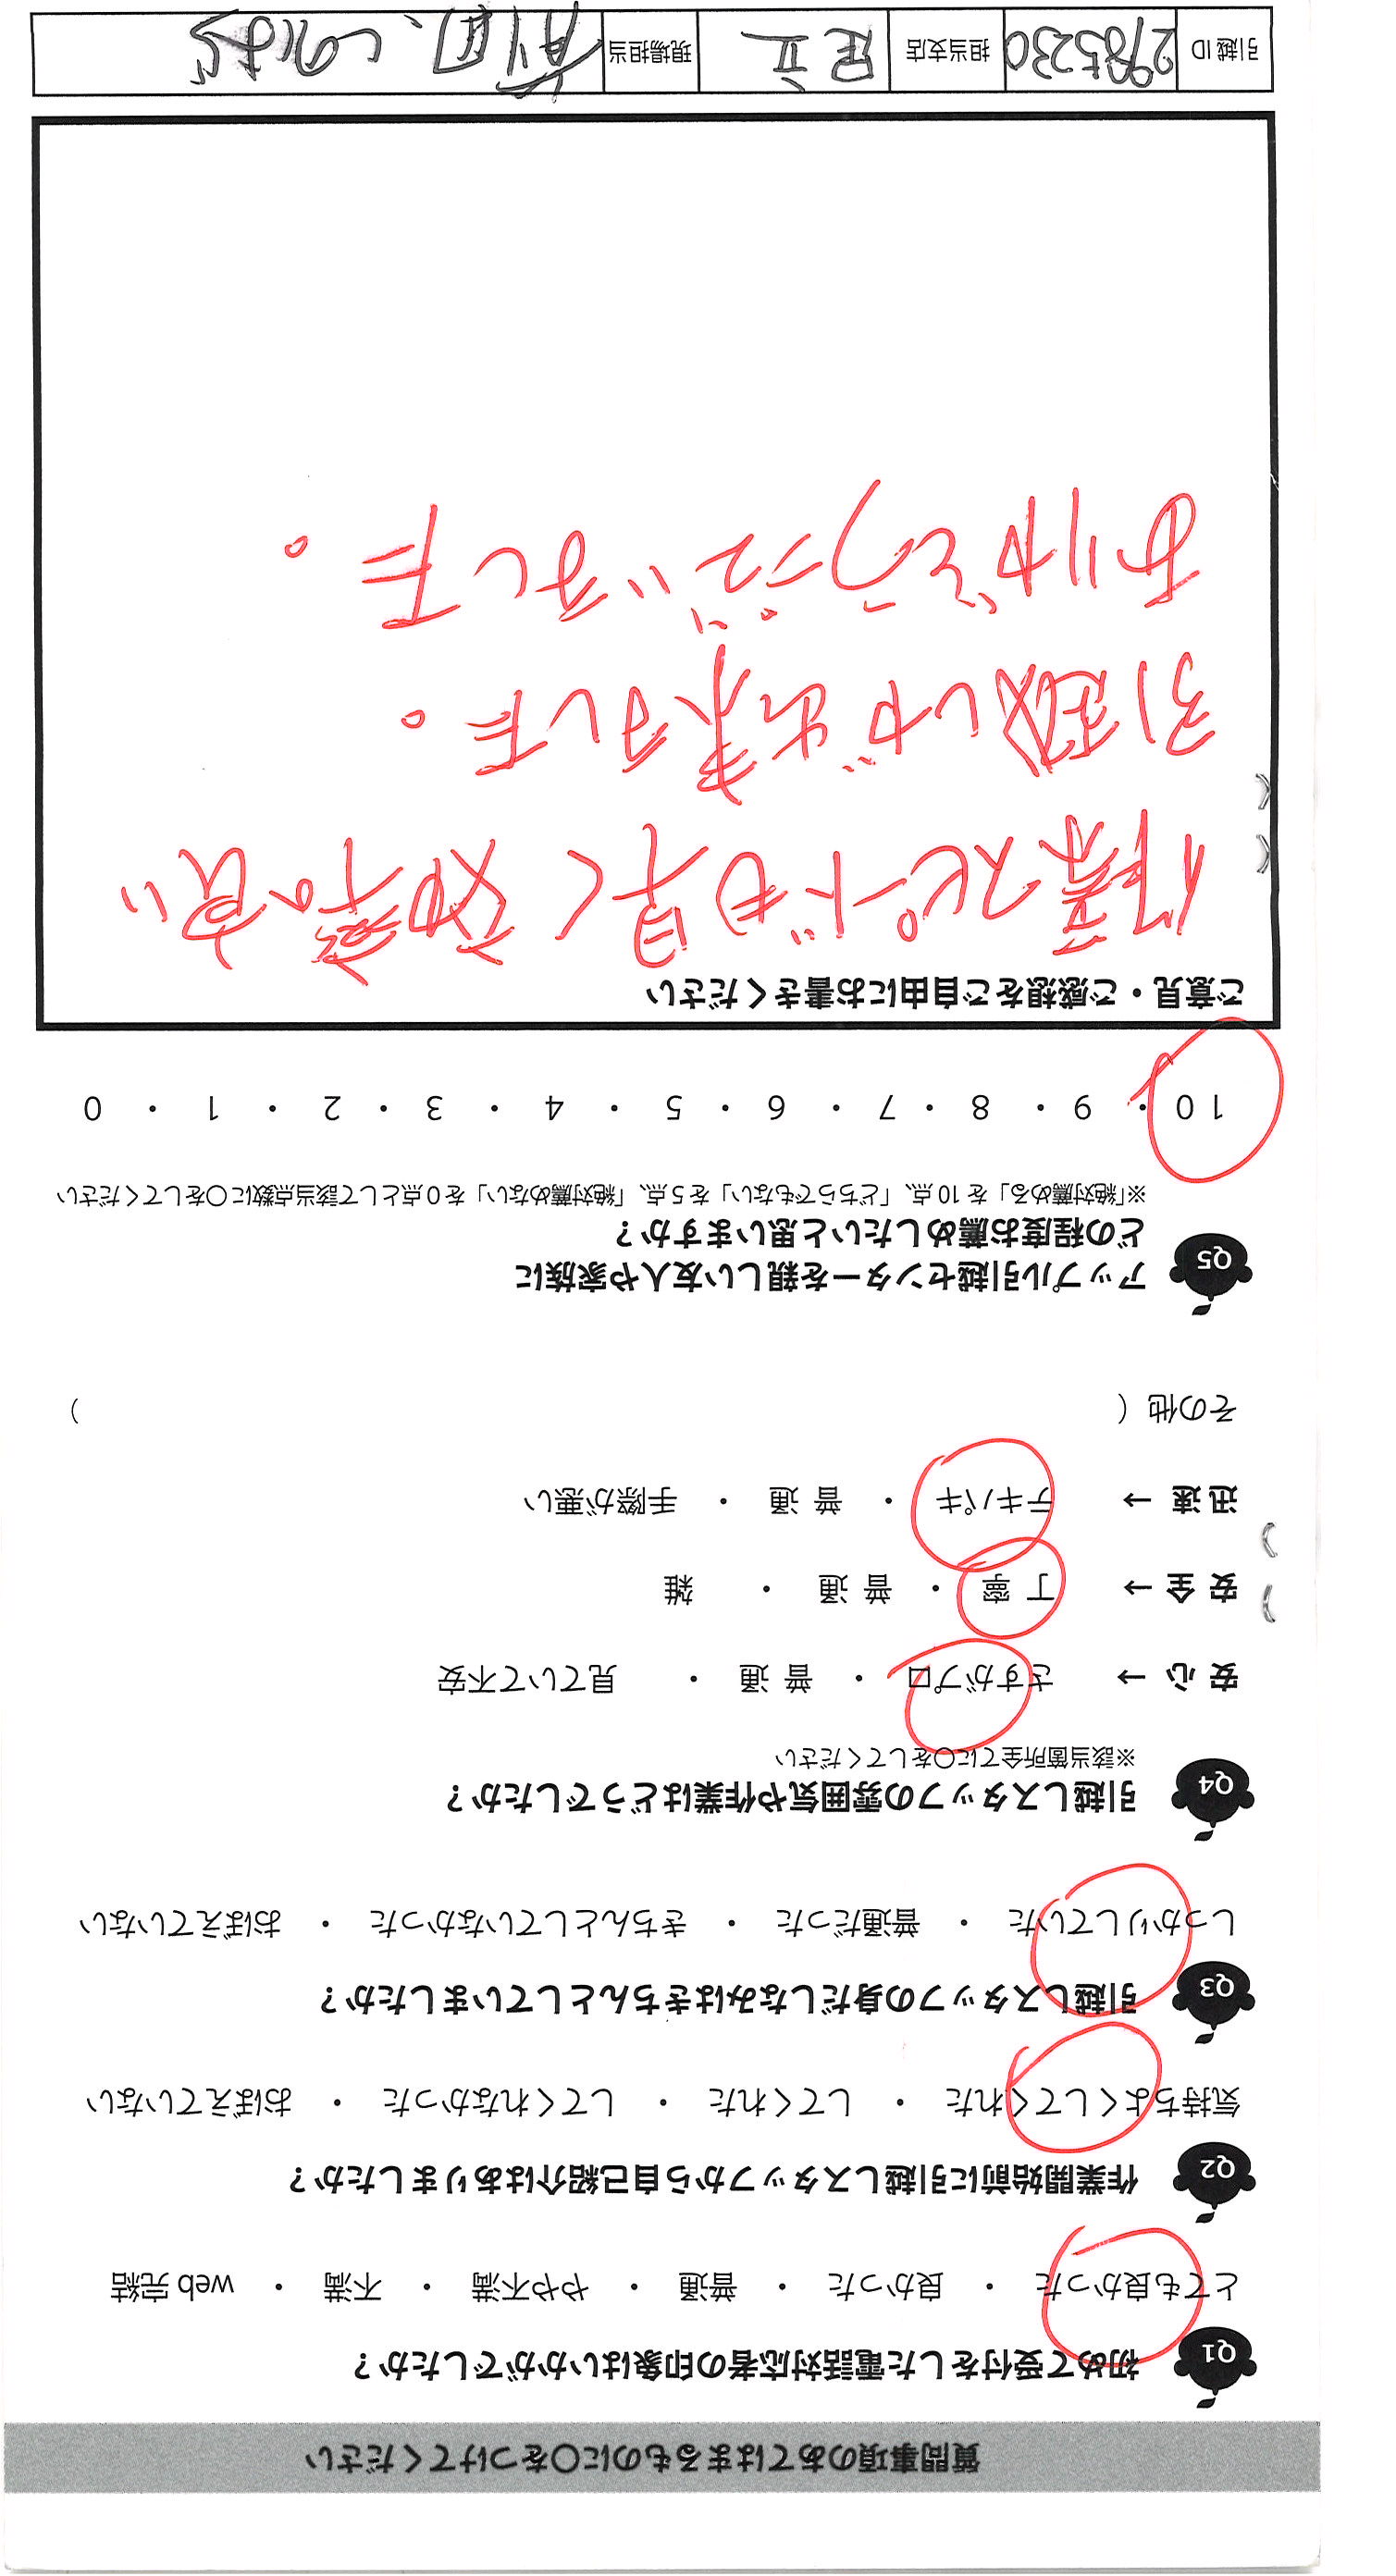 質問事項のあてはまるものに〇をつけてください
Q1 初めて受付をした電話対応者の印象はいかがでしたか？
とても良かった ・ 良かった ・ 普通 ・ やや不満 ・ 不満 ・ web 完結
Q2 作業開始前に引越しスタッフから自己紹介はありましたか？
気持ちよくしてくれた ・ してくれた ・ してくれなかった ・ おぼえていない
Q3 引越しスタッフの身だしなみはきちんとしていましたか？
しっかりしていた ・ 普通だった ・ きちんとしていなかった ・ おぼえていない
Q4 引越しスタッフの雰囲気や作業はどうでしたか？
※該当箇所全てに〇をしてください
安心 → さすがプロ ・ 普通 ・ 見ていて不安
安全 → 丁寧 ・ 普通 ・ 雑
迅速 → テキパキ ・ 普通 ・ 手際が悪い
その他（ ）
Q5 アップル引越センターを親しい友人や家族に
どの程度お薦めしたいと思いますか？
※「絶対薦める」を 10 点、「どちらでもない」を 5 点、「絶対薦めない」を 0 点として該当点数に〇をしてください
10 ・ 9 ・ 8 ・ 7 ・ 6 ・ 5 ・ 4 ・ 3 ・ 2 ・ 1 ・ 0
ご意見・ご感想をご自由にお書きください
作業スピードも早く効率の良い
引越しが出来ました。
ありがとうございました。
引越 ID 2985230 担当支店 足立 現場担当 前田、しのはら